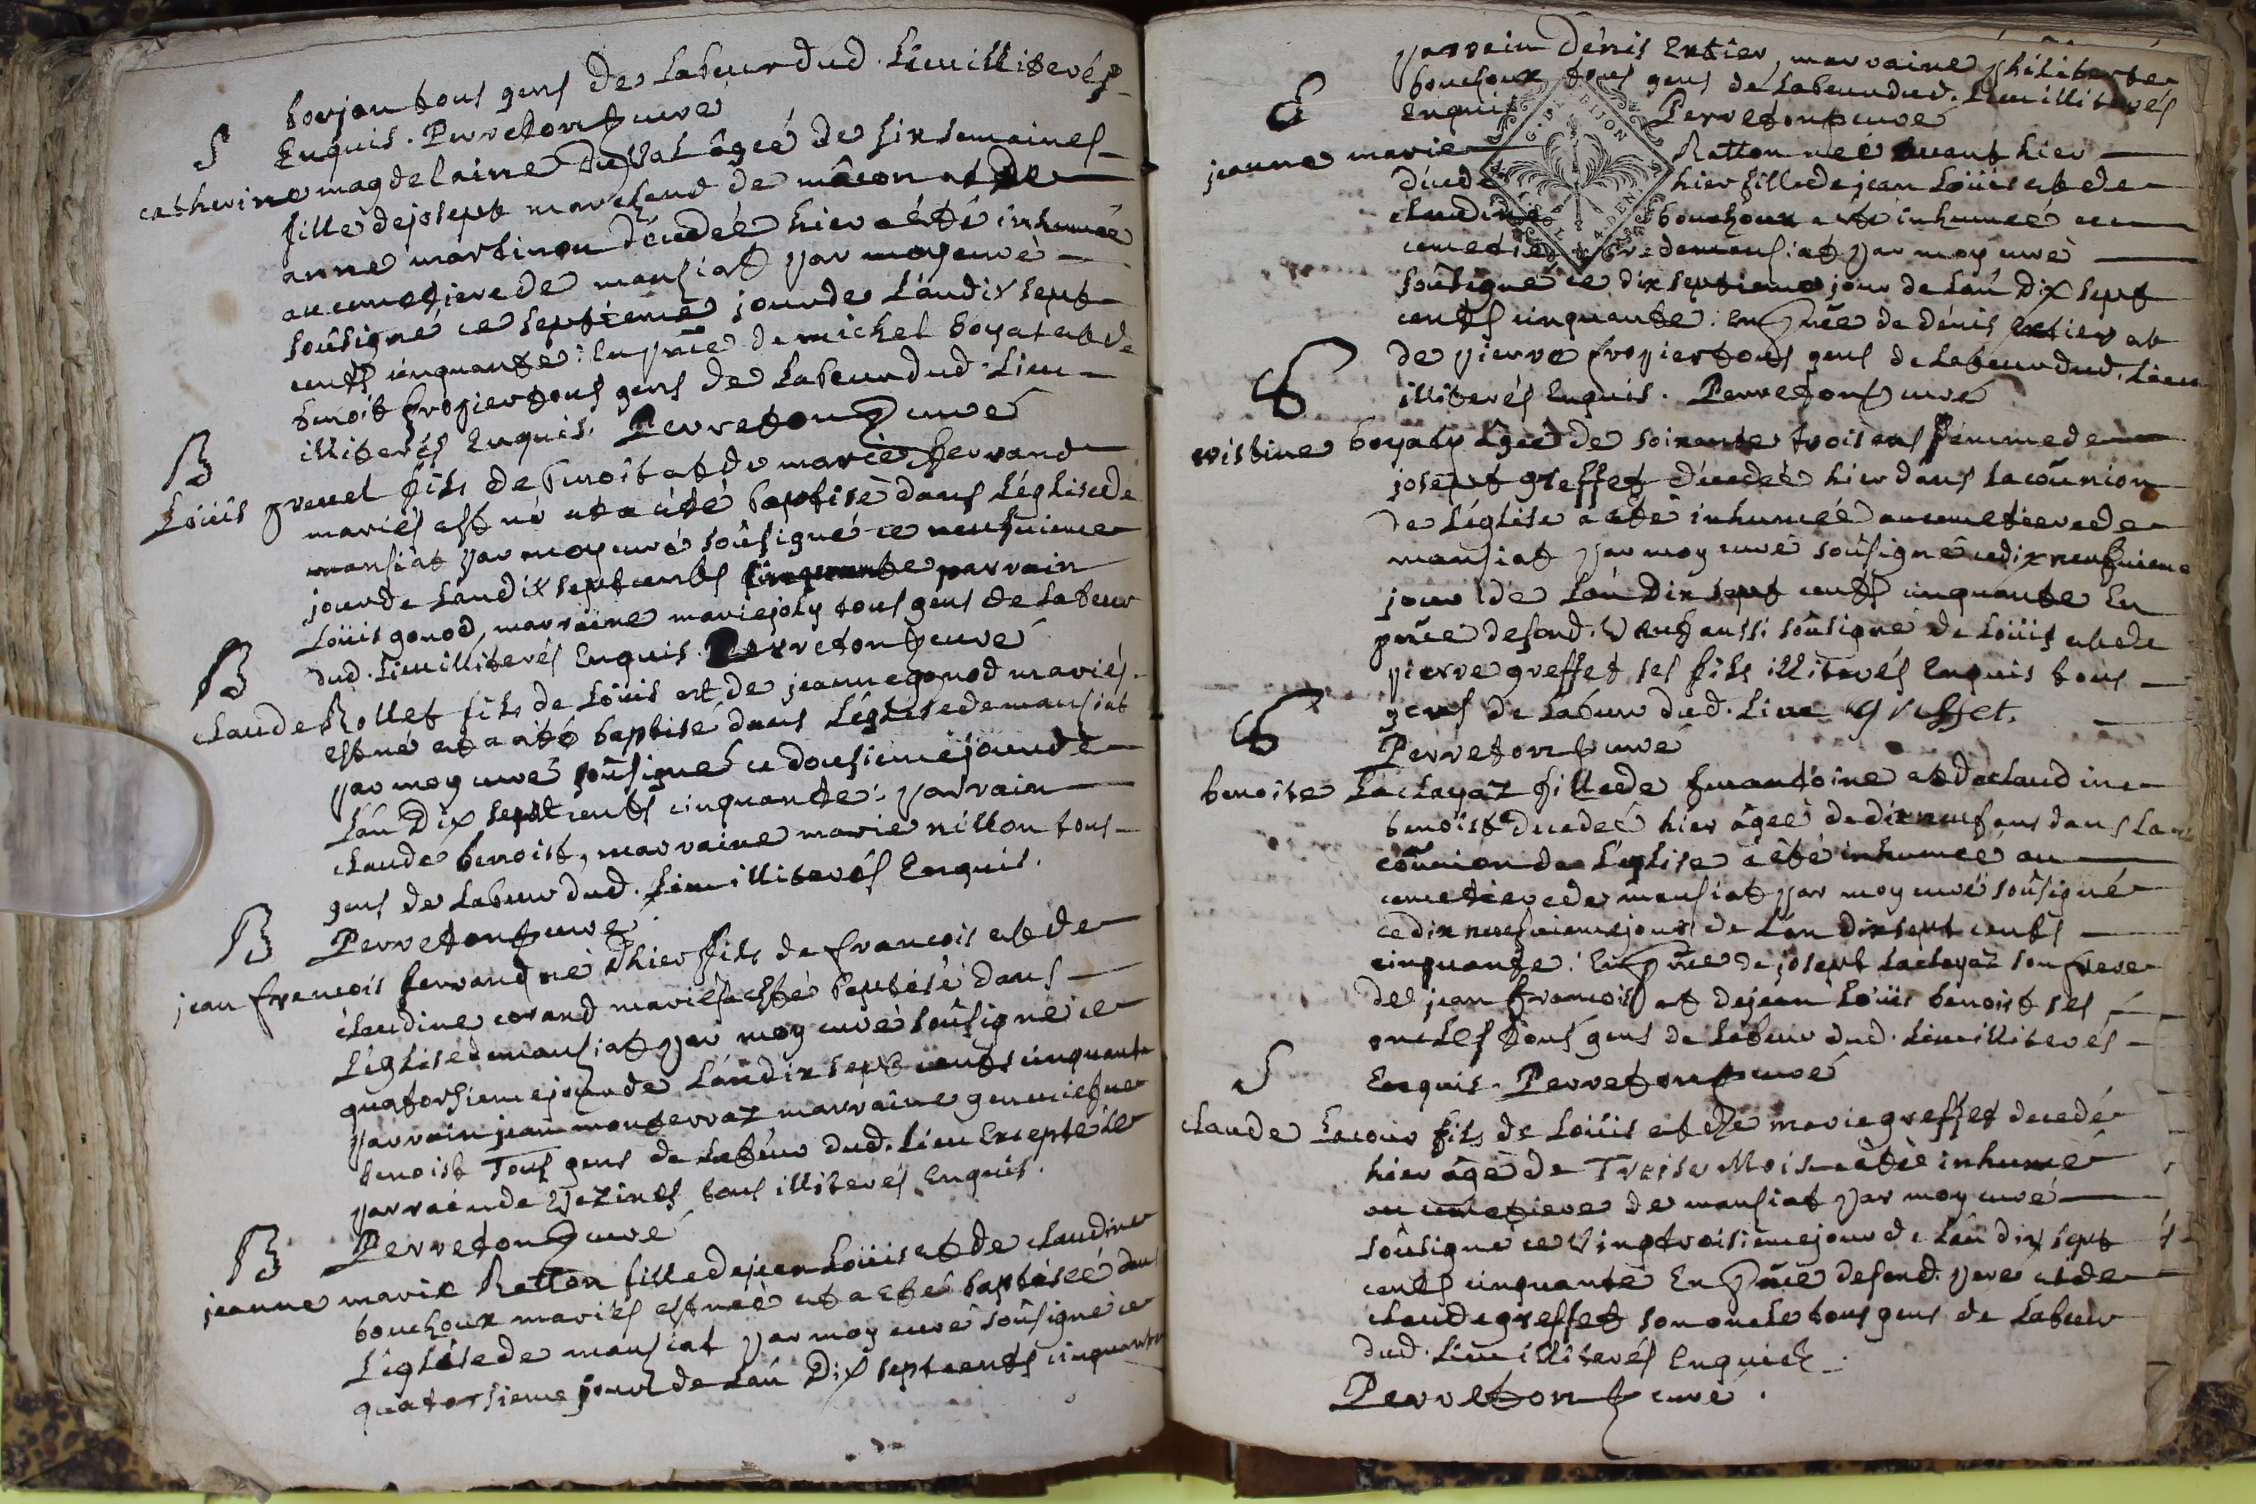 borjon tous gens de labeur dud. lieu illiterés
Enquis. Perreton curé
S
catherine magdelaine duval âgeé de six semaines
fille de josept marchand de mâcon et de
anne martinon décedeé hier a été inhumeé
au cimetiere de mansiat par moy curé
soûsigné ce septiême jour de l'an dix sept
cents cinquante: En pñce de michel boyat et de
benoit frogier tous gens de labeur dud. lieu
illiterés Enquis. Perreton curé
B
Loüis grevet fils de benoît et de marie ferrand
mariés est né et a été baptisé dans l'église de
mansiat par moy curé soûsigné ce neufvieme
jour de l'an dix sept cents cinquante parrain
Loüis gonod, marraine marie joly tous gens de labeur
dud. lieu illiterés Enquis. Perreton curé
B
claude Rollet fils de Loüis et de jeanne gonod mariés
est né et a été baptisé dans l'église de mansiat
par moy curé soûsigné ce dousieme jour de
l'an Dix sept cents cinquante: parrain
claude benoist, marraine marie nillon tous
gens de labeur dud. lieu illiterés Enquis.
Perreton curé
B
jean francois ferrand né d'hier fils de francois et de
claudine corand mariés a esté baptisé dans
l'église de mansiat par moy curé soûsigné ce
quatorsieme jour de l'an dix sept cents cinquante
parrain jean monterrat marraine genevieve
benoist Tous gens de labeur dud. lieu Excepté le
parrain de Vezines tous illiterés Enquis.
Perreton curé
B
jeanne marie Ratton fille de jean Loüis et de claudine
bouchoux mariés est neé et a esté baptiseé dans
l'église de mansiat par moy curé soûsigné ce
quatorsieme jour de l'an Dix sept cents cinquante
parrain Dénis Extier, marraine philiberte
bouchoux tous gens de labeur dud. lieu illiterés
Enquis Perreton curé
DIJON
jeanne marie Ratton neé avant hier
décedeé hier fille de jean Loüis et de
claudine bouchoux a été inhumeé au
cimetiere de mansiat par moy curé
soûsigné ce dix septieme jour de l'an Dix sept
cents cinquante: En pñce de dénis Extier et
de pierre frogier tous gens de labeur dud. lieu
illiterés Enquis. Perreton curé
cristine boyat âgeé de soixante trois ans femme de
josept greffet décedeé hier dans la coûnion
de l'église a été inhumeé au cimetiere de
mansiat par moy curé soûsigné ce dix neufvieme
jour de l'an Dix sept cents cinquante En
pñce de sond. aussi soûsigné de Loüis et de
pierre greffet ses fils illiterés Enquis tous
gens de labeur dud. lieu greffet.
Perreton curé
benoite Laclayat fille de feu antoine et de claudine
benoist décedeé hier âgeé de dix neuf ans dans la
coûnion de l'église a été inhumeé au
cimetiere de mansiat par moy curé soûsigné
ce dix neufvieme jour de l'an dix sept cents
cinquante: En pñce de josept Laclayat son frere
de jean francois et de jean Loüis benoist ses
oncles tous gens de labeur dud. lieu illiterés
Enquis. Perreton curé
S
claude Lacour fils de Loüis et de marie greffet decedé
hier âgé de Treise Mois a été inhumé
au cimetiere de mansiat par moy curé
soûsigné ce vingt troisieme jour de l'an dix sept
cents cinquante En pñce de sond. pere et de
claude greffet son oncle tous gens de labeur
dud. lieu illiterés Enquis.
Perreton curé.